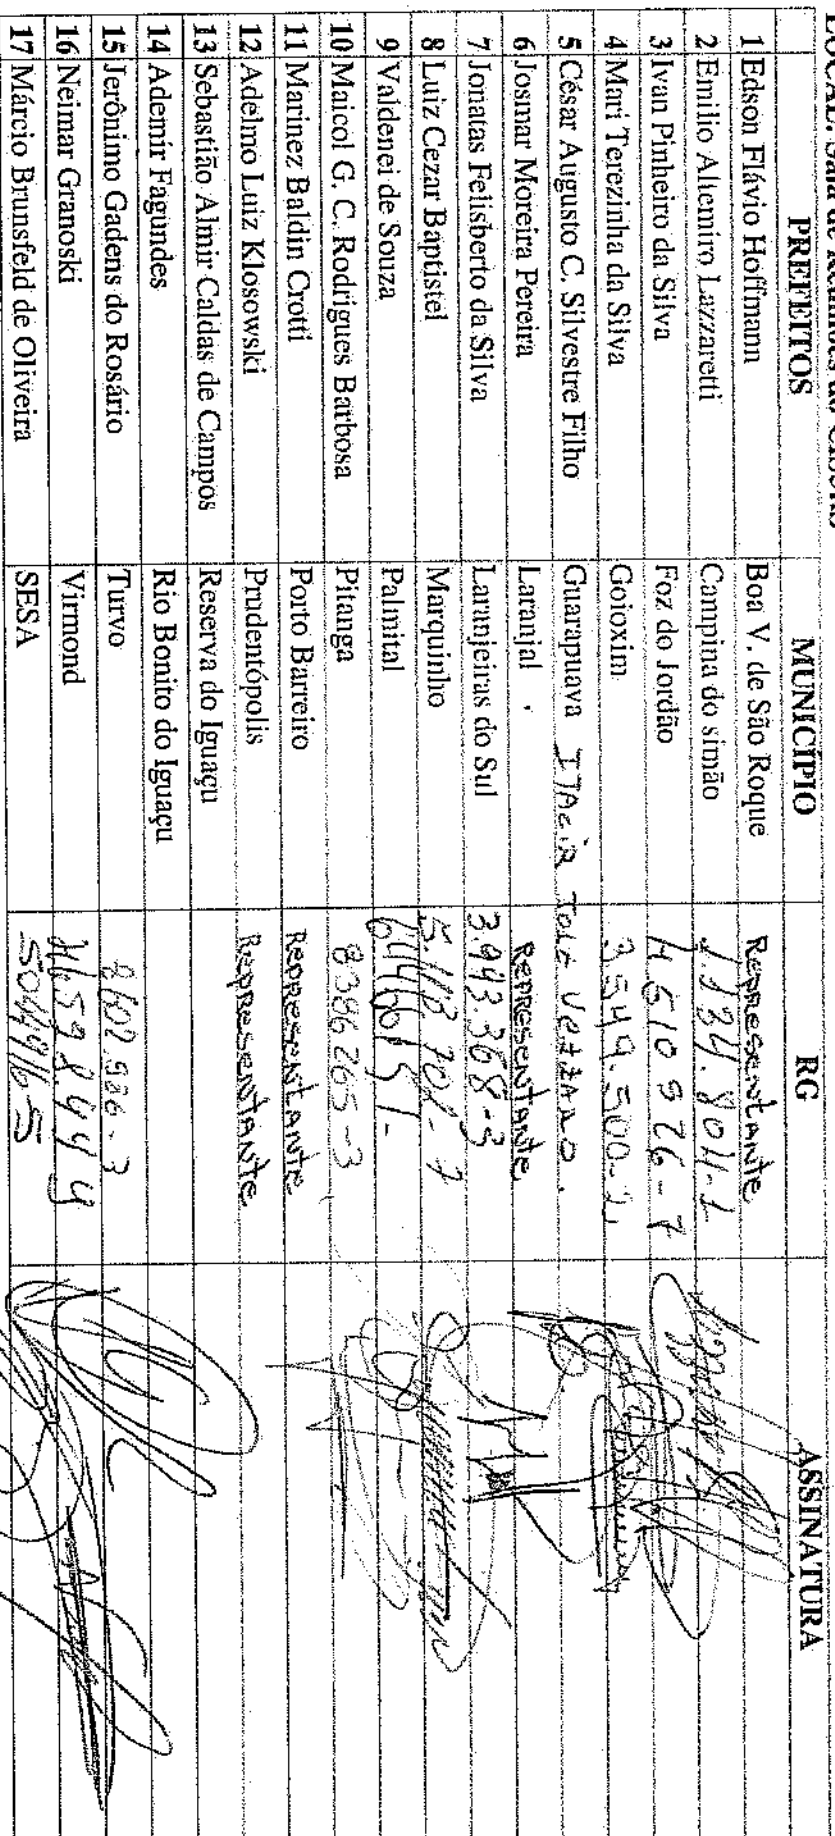 LOCAL: Sala de Reuniões do
PREFEITOS MUNICÍPIO RG ASSINATURA
1 Edson Flávio Hoffmann Boa V. de São Roque Representante
2 Emilio Altemiro Lazzaretti Campina do simão
3 Ivan Pinheiro da Silva Foz do Jordão 4510926-7
4 Mari Terezinha da Silva Goioxim 3549.500-2
5 César Augusto C. Silvestre Filho Guarapuava
6 Josmar Moreira Pereira Laranjal Representante
7 Jonatas Felisberto da Silva Laranjeiras do Sul 3.943.368-3
8 Luiz Cezar Baptistel Marquinho
9 Valdenei de Souza Palmital
10 Maicol G. C. Rodrigues Barbosa Pitanga 8386265-3
11 Marinez Baldin Crotti Porto Barreiro Representante
12 Adelmo Luiz Klosowski Prudentópolis Representante
13 Sebastião Almir Caldas de Campos Reserva do Iguaçu
14 Ademir Fagundes Rio Bonito do Iguaçu
15 Jerônimo Gadens do Rosário Turvo
16 Neimar Granoski Virmond
17 Márcio Brunsfeld de Oliveira SESA